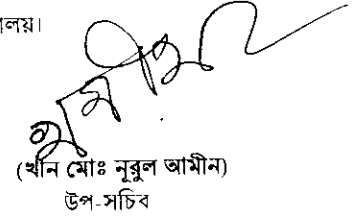 লয়।
(খান মোঃ নূরুল আমীন)
উপ-সচিব